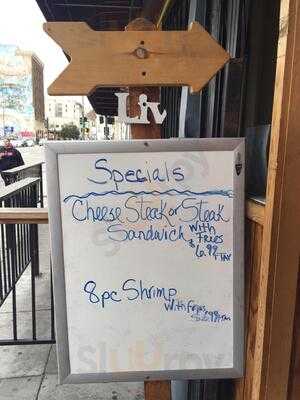 Liv
Specials
Cheese Steak or Steak
Sandwich with
Fries
$6.99
+TAX
8pc Shrimp
with Fries
+TAX